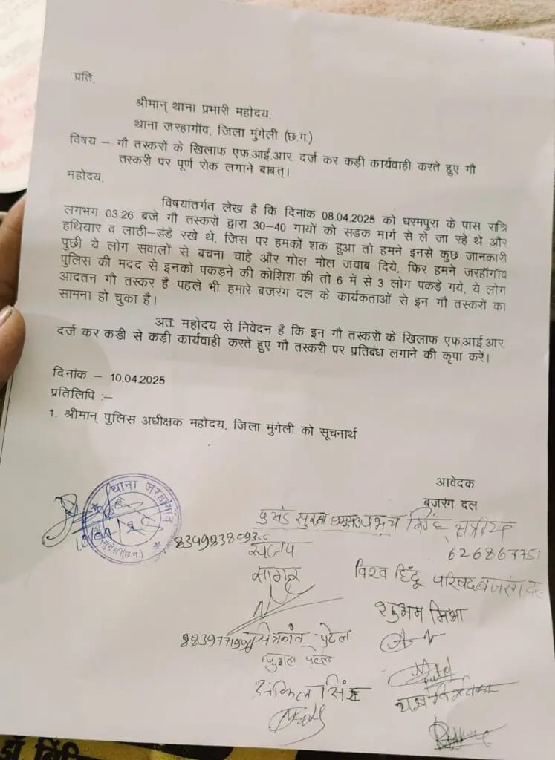 प्रति,
श्रीमान् थाना प्रभारी महोदय
थाना जरहागाँव, जिला मुंगेली (छ.ग.)
विषय – गौ तस्करो के खिलाफ एफ.आई.आर दर्ज कर कड़ी कार्यवाही करते हुए गौ
तस्करी पर पूर्ण रोक लगाने बाबत्।
महोदय,
विषयांतर्गत लेख है कि दिनांक 08.04.2025 को धरमपुरा के पास रात्रि
लगभग 03:26 बजे गौ तस्करो द्वारा 30-40 गायों को सड़क मार्ग से ले जा रहे थे और
हथियार व लाठी-डंडे रखे थे, जिस पर हमको शक हुआ तो हमने इनसे कुछ जानकारी
पुछी ये लोग सवालों से बचना चाहे और गोल मोल जवाब दिये, फिर हमने जरहॉगांव
पुलिस की मदद से इनको पकड़ने की कोशिश की तो 6 में से 3 लोग पकड़े गये, ये लोग
आदतन गौ तस्कर है पहले भी हमारे बजरंग दल के कार्यकताओं से इन गौ तस्करों का
सामना हो चुका है।
अतः महोदय से निवेदन है कि इन गौ तस्करो के खिलाफ एफ.आई.आर
दर्ज कर कड़ी से कड़ी कार्यवाही करते हुए गौ तस्करी पर प्रतिबंध लगाने की कृपा करें।
दिनांक – 10.04.2025
प्रतिलिपि :–
1. श्रीमान् पुलिस अधीक्षक महोदय, जिला मुंगेली को सूचनार्थ
आवेदक
बजरंग दल
थाना जरहागांव
सिंह
विश्व हिंदू परिषद बजरंग दल
सागर
शुभम मिश्रा
पटेल
सिंह